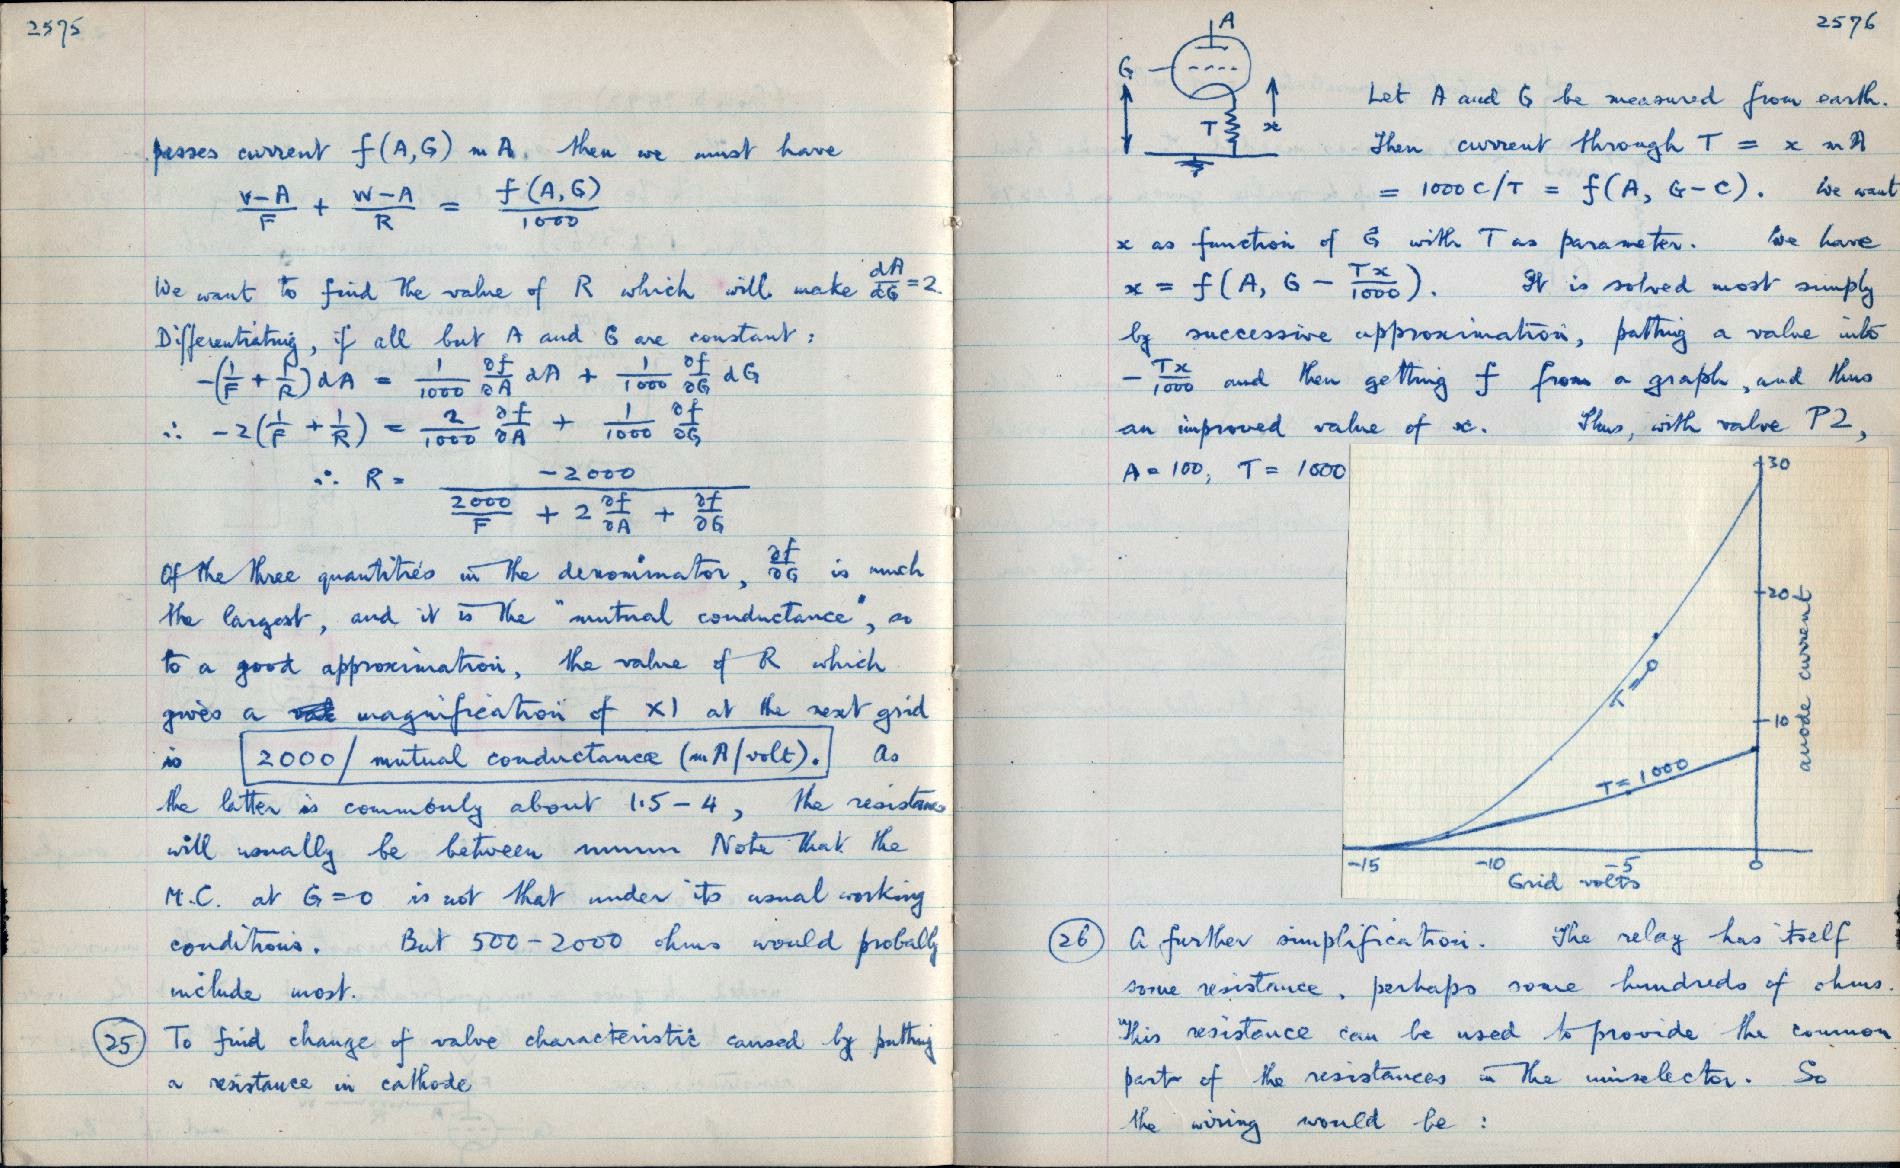 2575
passes current f(A,G) mA. then we must have
v-A/F + W-A/R = f(A,G)/1000
We want to find the value of R which will make dA/dG = 2.
Differentiating, if all but A and G are constant:
-(1/F + 1/R) dA = 1/1000 ∂f/∂A dA + 1/1000 ∂f/∂G dG
∴ -2(1/F + 1/R) = 2/1000 ∂f/∂A + 1/1000 ∂f/∂G
∴ R = -2000 / (2000/F + 2 ∂f/∂A + ∂f/∂G)
Of the three quantities in the denominator, ∂f/∂G is much
the largest, and it is the "mutual conductance", so
to a good approximation, the value of R which
gives a magnification of X1 at the next grid
is 2000/ mutual conductance (mA/volt). As
the latter is commonly about 1.5-4, the resistance
will usually be between Note that the
M.C. at G=0 is not that under its usual working
conditions. But 500-2000 ohms would probably
include most.
25 To find change of valve characteristic caused by putting
a resistance in cathode
2576
A
G
T
x
Let A and G be measured from earth.
Then current through T = x mA
= 1000 C/T = f(A, G-C). We want
x as function of G with T as parameter. We have
x = f(A, G - Tx/1000). It is solved most simply
by successive approximation, putting a value into
- Tx/1000 and then getting f from a graph, and thus
an improved value of x. Thus, with valve P2,
A = 100, T = 1000
30
20
10
anode current
T=0
T=1000
-15 -10 -5 0
Grid volts
26 A further simplification. The relay has itself
some resistance, perhaps some hundreds of ohms.
This resistance can be used to provide the common
part of the resistances in the uniselector. So
the wiring would be :